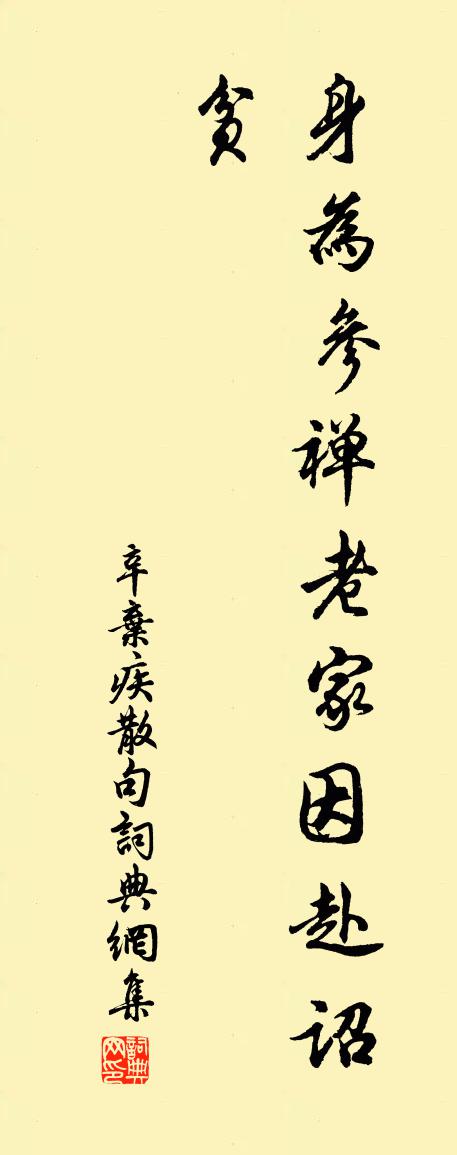 身為參禪老家因赴詔
貧
辛棄疾散句詞典網集
詞典网印